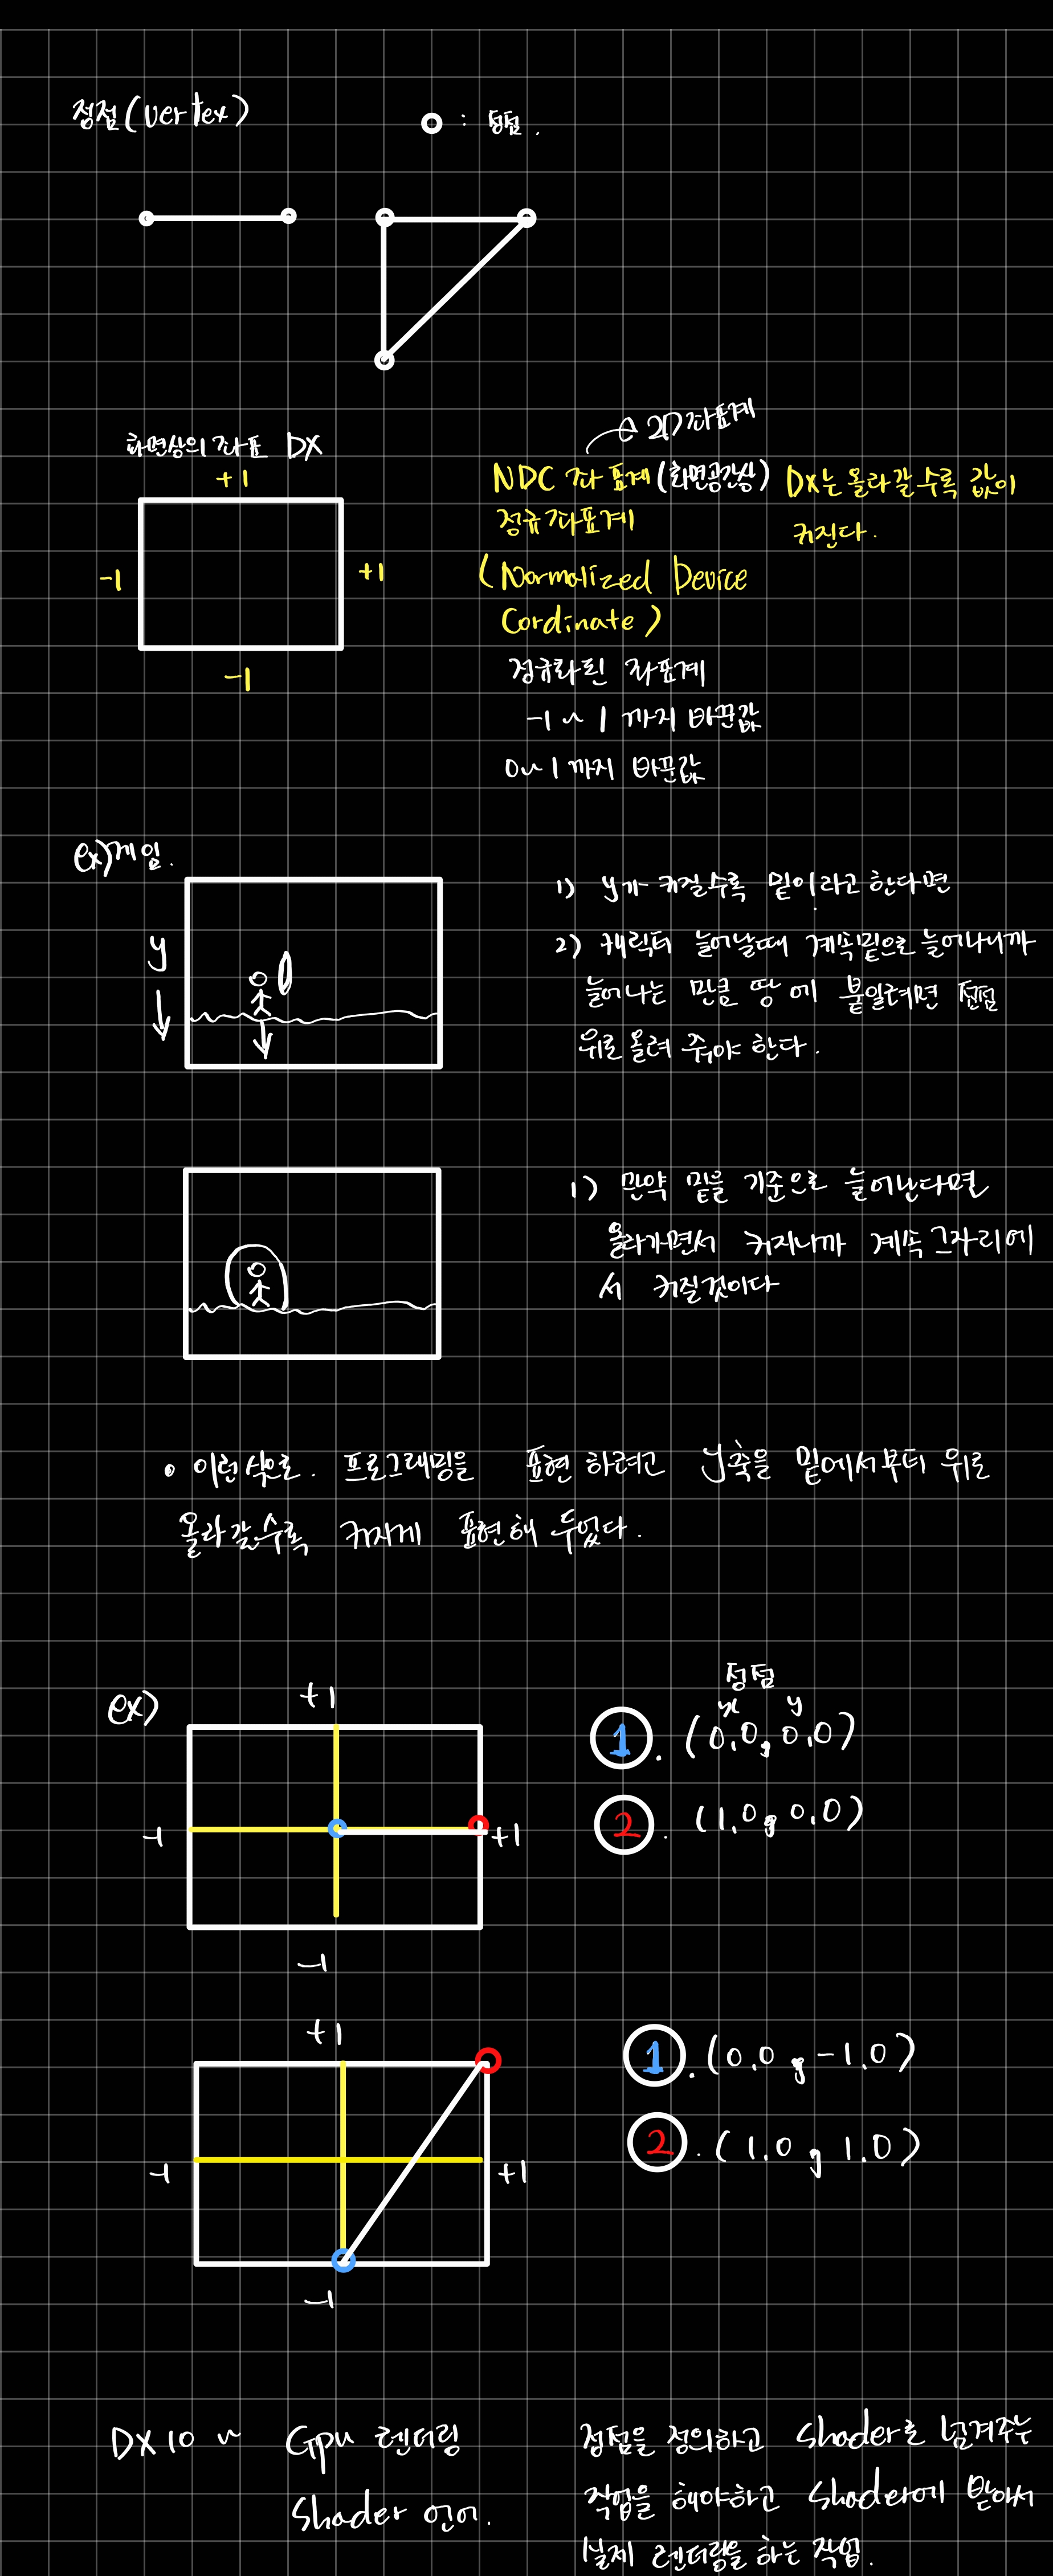 정점(vertex)
: 정점.
화면상의 좌표 DX
+1
-1
+1
-1
2D좌표계
NDC 좌표계(화면공간상)
정규좌표계
(Normalized Device
Cordinate)
DX는 올라갈수록 값이
커진다.
정규화된 좌표계
-1 ~ 1 까지 바꾼값
0~1까지 바꾼값
ex)게임.
y
1) y가 커질수록 밑이라고 한다면
2) 캐릭터 늘어날때 계속밑으로 늘어나니까
늘어나는 만큼 땅에 붙일려면 정점
위로 올려 줘야 한다.
1) 만약 밑을 기준으로 늘어난다면
올라가면서 커지니까 계속 그자리에
서 커질것이다
• 이런식으로. 프로그래밍을 표현 하려고 y축을 밑에서부터 위로
올라갈수록 커지게 표현해 두었다.
ex)
+1
-1
+1
-1
정점
x y
1. (0.0, 0.0)
2. (1.0, 0.0)
+1
-1
+1
-1
1. (0.0, -1.0)
2. (1.0, 1.0)
DX10 ~ Gpu 렌더링
Shader 언어.
정점을 정의하고 Shader로 넘겨주는
작업을 해야하고 Shader에 받아서
실제 렌더링을 하는 작업.